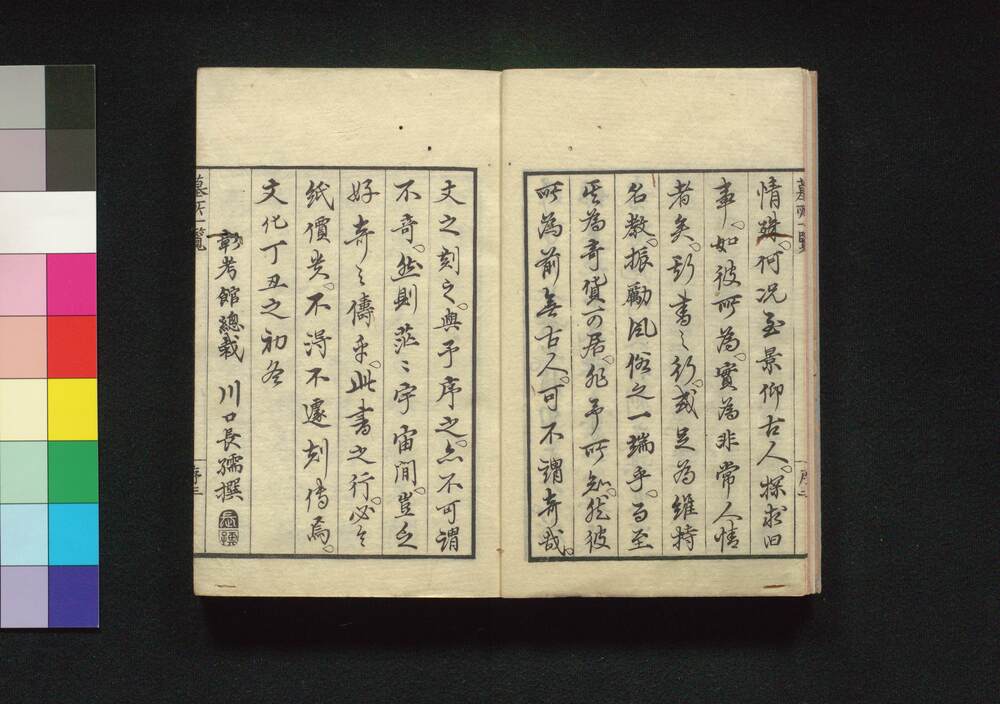 情殊。何況至景仰古人。探求旧
事。如彼所為。實為非常人情
者矣。斯書之行。或足為維持
名教。振勵風俗之一端乎。而至
其為奇貨可居。非予所知。然彼
所為前無古人。可不謂奇哉。
丈之刻之。與予序之。亦不可謂
不奇。然則茫〻宇宙間。豈乏
好奇之儔乎。此書之行。必令
紙價貴。不得不遽刻傳焉。
文化丁丑之初冬
彰考館總裁 川口長孺撰
墓所一覧
序三